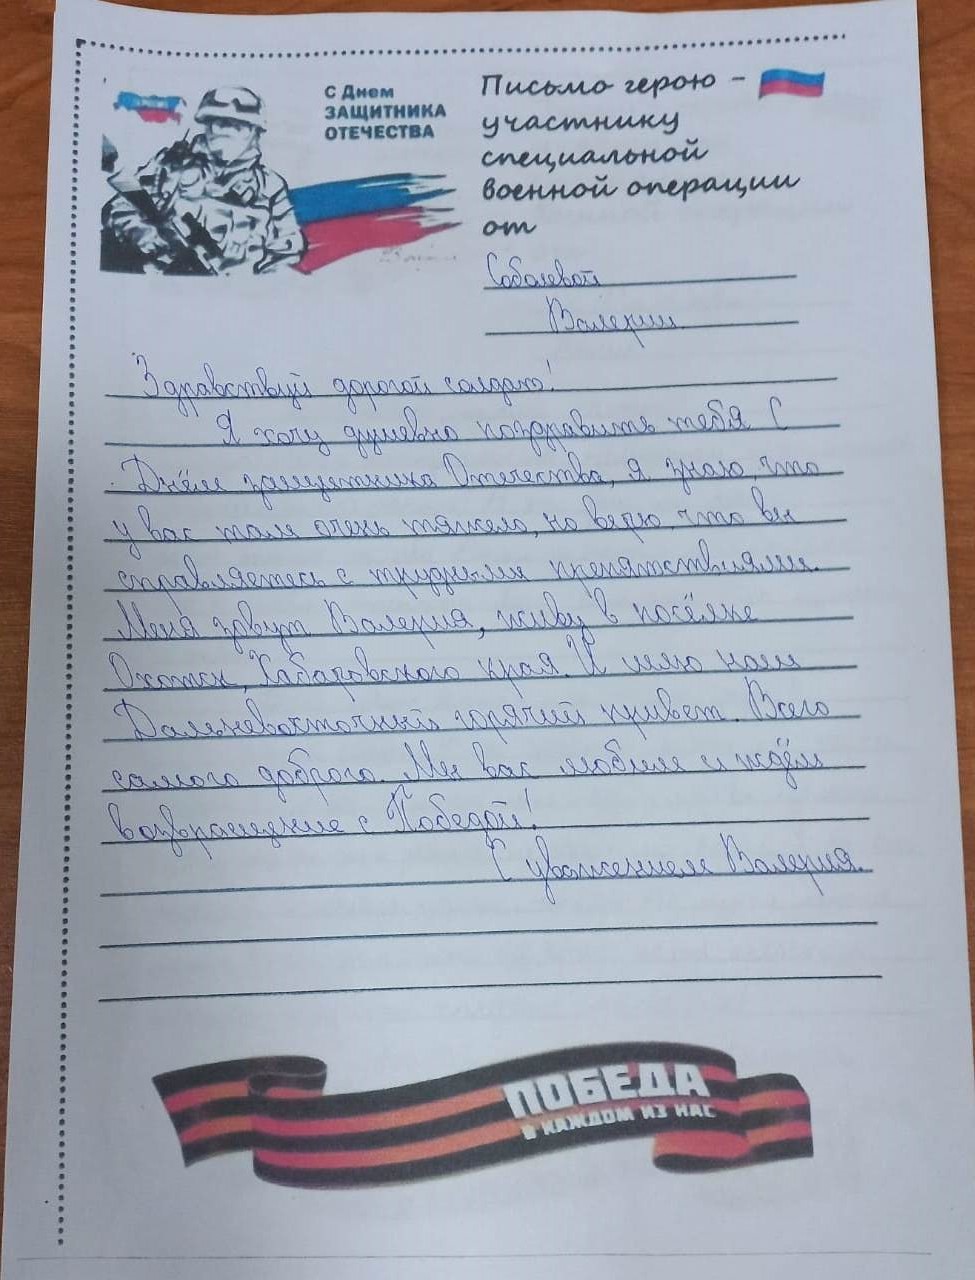 С Днем
ЗАЩИТНИКА
ОТЕЧЕСТВА
Письмо герою -
участнику
специальной
военной операции
от
Соболевой
Валерии
Здравствуй дорогой солдат!
Я хочу душевно поздравить тебя С
Днём защитника Отечества, я знаю, что
у вас там очень тяжело, но верю, что вы
справляетесь с трудными препятствиями.
Меня зовут Валерия, живу в посёлке
Охотск, Хабаровского края. И шлю наш
Дальневосточный горячий привет. Всего
самого доброго. Мы вас любим и ждём
возвращение с Победой!
С уважением Валерия.
ПОБЕДА
В КАЖДОМ ИЗ НАС